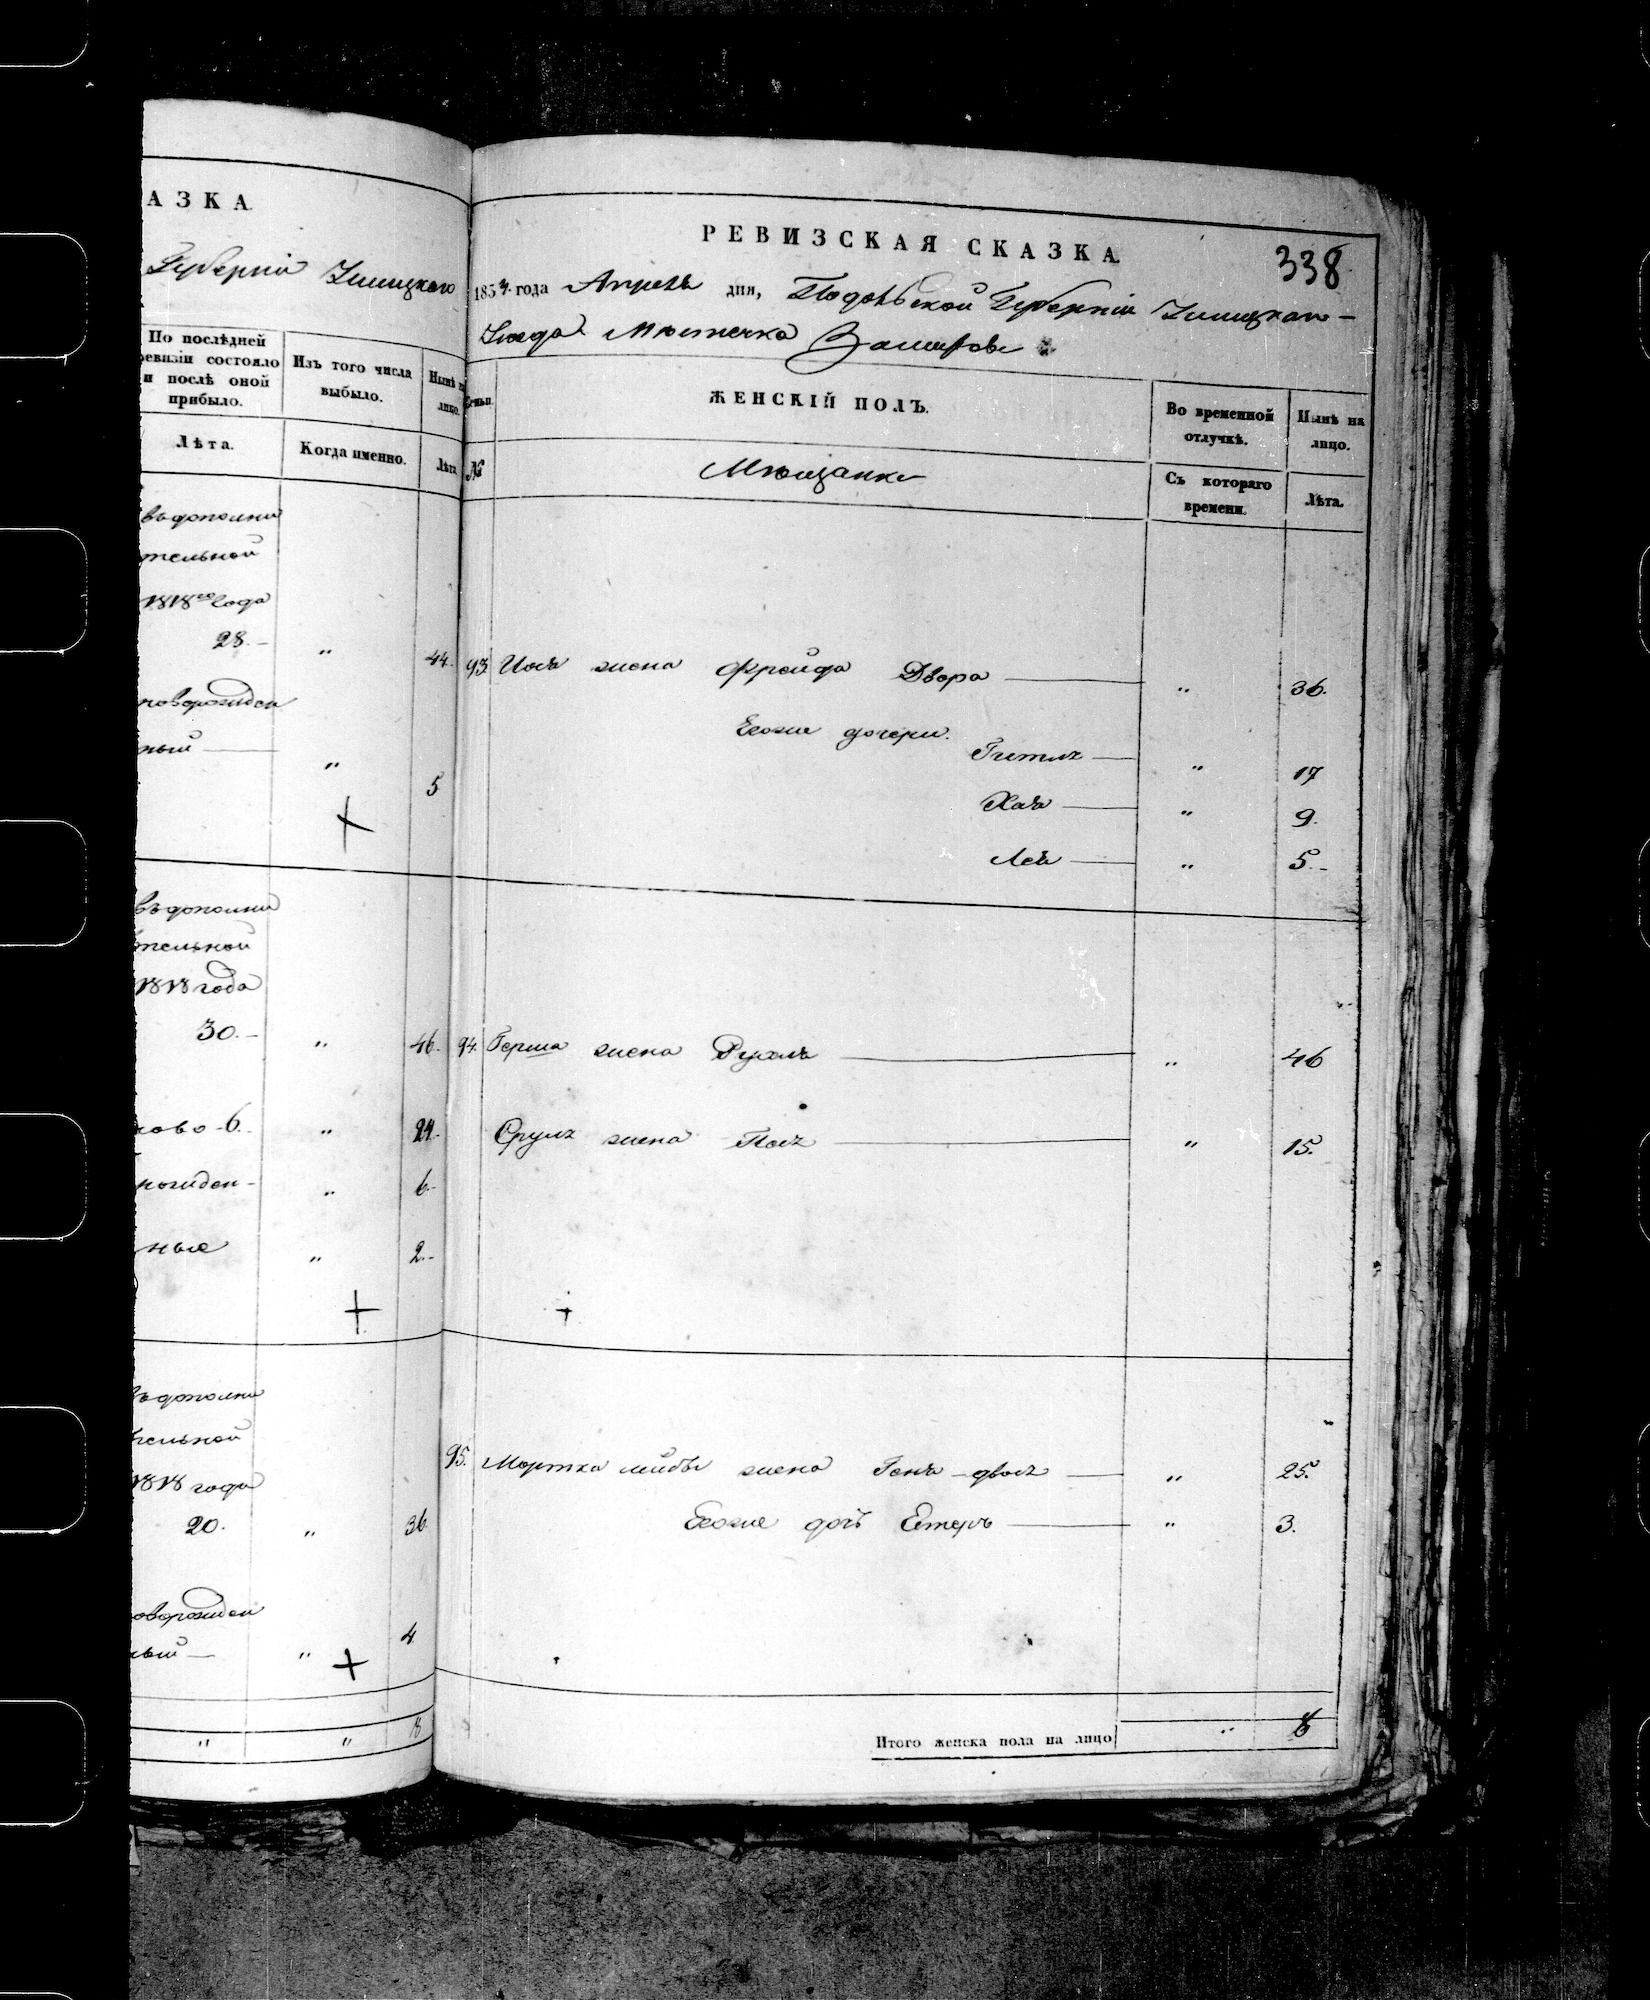 АЗКА
Губерніи Ушицкого
По послѣдней
ревизіи состояло
и послѣ оной
прибыло.
Изъ того числа
выбыло.
Нынѣ на
лицо.
Лѣта.
Когда именно.
Лѣта
въ дополни
тельной
1818го года
28. „ 44.
новорожден
ный — „ 5
въ дополни
тельной
1818 года
30. „ 46.
ново- 6. „ 24.
рожден- „ 6.
ные „ 2.
въ дополни
тельной
1818 года
20. „ 36
новорожден
ный — „ 4
„ „ 8
РЕВИЗСКАЯ СКАЗКА
338
185 года Апрель дня, Подольской Губерніи Ушицкаго
Уезда Мѣстечка
Семьи.
ЖЕНСКІЙ ПОЛЪ.
Во временной
отлучкѣ.
Нынѣ на
лицо.
№
Мѣщанки
Съ котораго
времени.
Лѣта.
93 жена Фрейда Двора — „ 36.
Егоже дочери.
Гитля — „ 17
Хая — „ 9.
Лея — „ 5.
94. Герша жена Рухля — „ 46
Срумъ жена — „ 15.
95. Мортка лейбы жена — „ 25.
Егоже дочь Етеръ — „ 3.
Итого женска пола на лицо „ 8